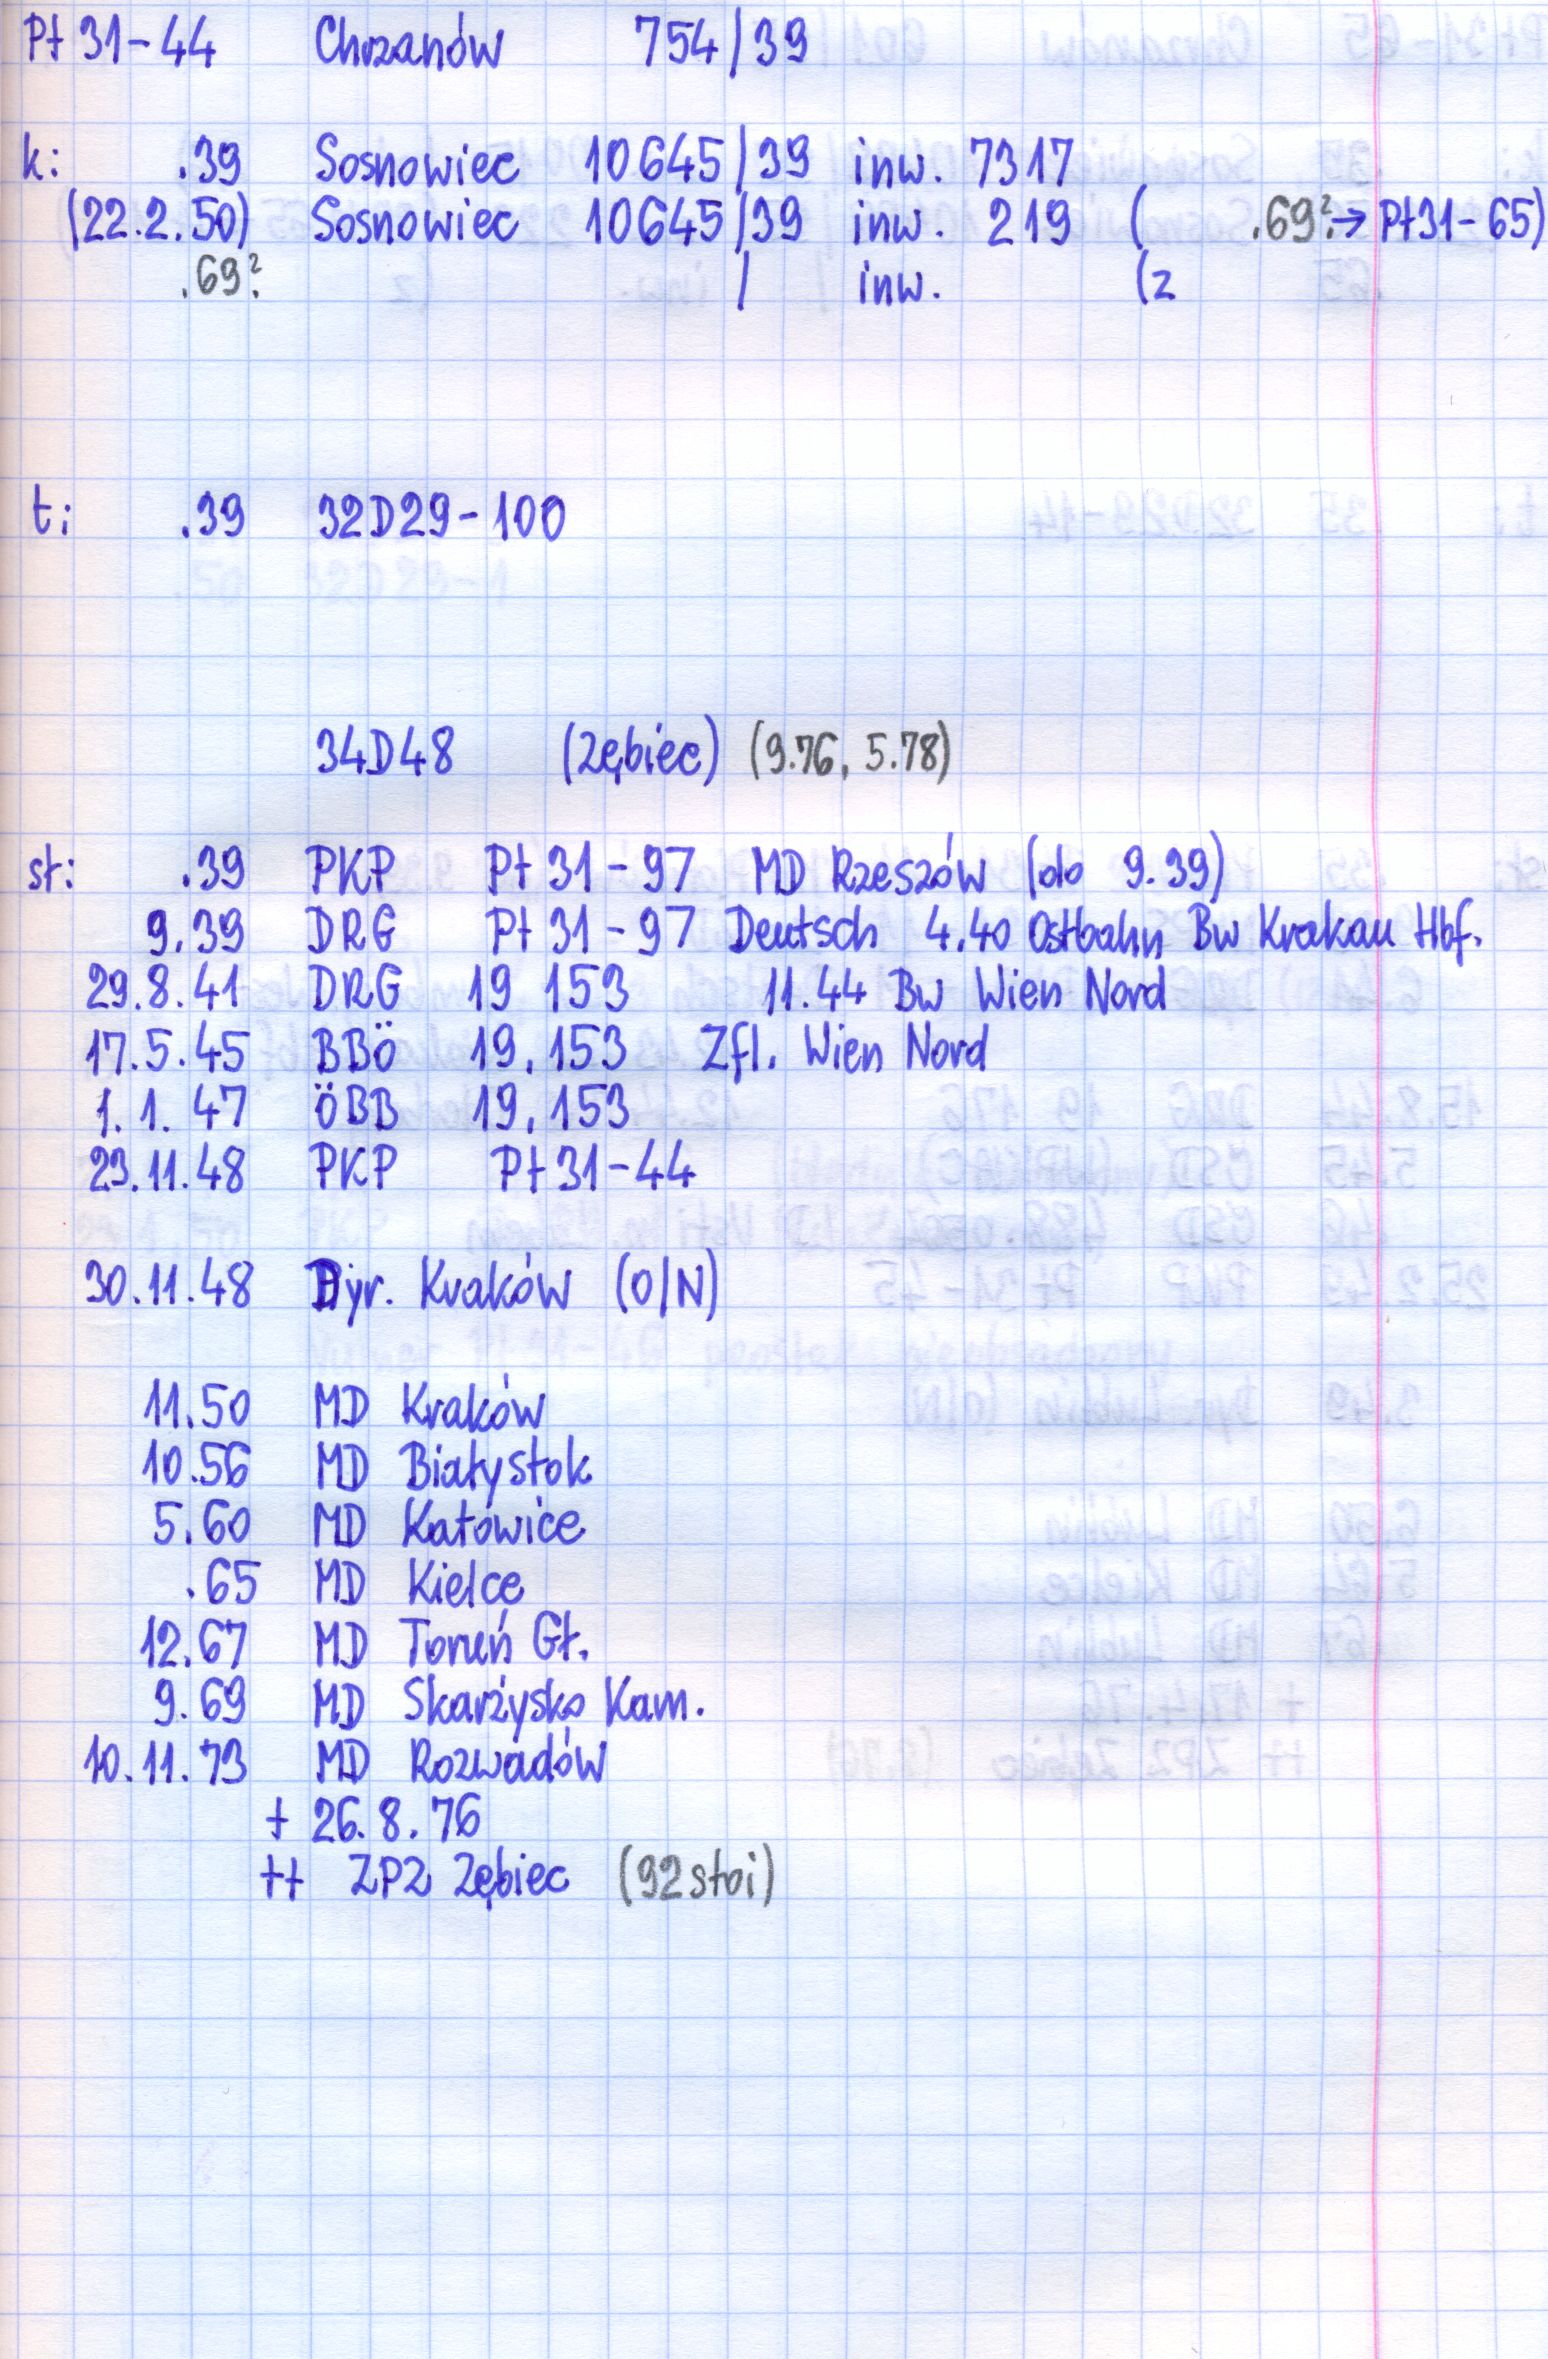 Pt 31-44 Chrzanów 754/39
k: .39 Sosnowiec 10645/39 inw. 7317
(22.2.50) Sosnowiec 10645/39 inw. 219 ( .69? → Pt31-65)
.69? / inw. (z
t: .39 32D29-100
34D48 (Zębiec) (9.76, 5.78)
st: .39 PKP Pt 31-97 MD Rzeszów (do 9.39)
9.39 DRG Pt 31-97 Deutsch 4.40 Ostbahn Bw Krakau Hbf.
29.8.41 DRG 19 153 11.44 Bw Wien Nord
17.5.45 BBÖ 19.153 Zfl. Wien Nord
1.1.47 ÖBB 19.153
23.11.48 PKP Pt 31-44
30.11.48 Dyr. Kraków (O/N)
11.50 MD Kraków
10.56 MD Białystok
5.60 MD Katowice
.65 MD Kielce
12.67 MD Toruń Gł.
9.69 MD Skarżysko Kam.
10.11.73 MD Rozwadów
+ 26.8.76
++ ZPZ Zębiec (92 stoi)